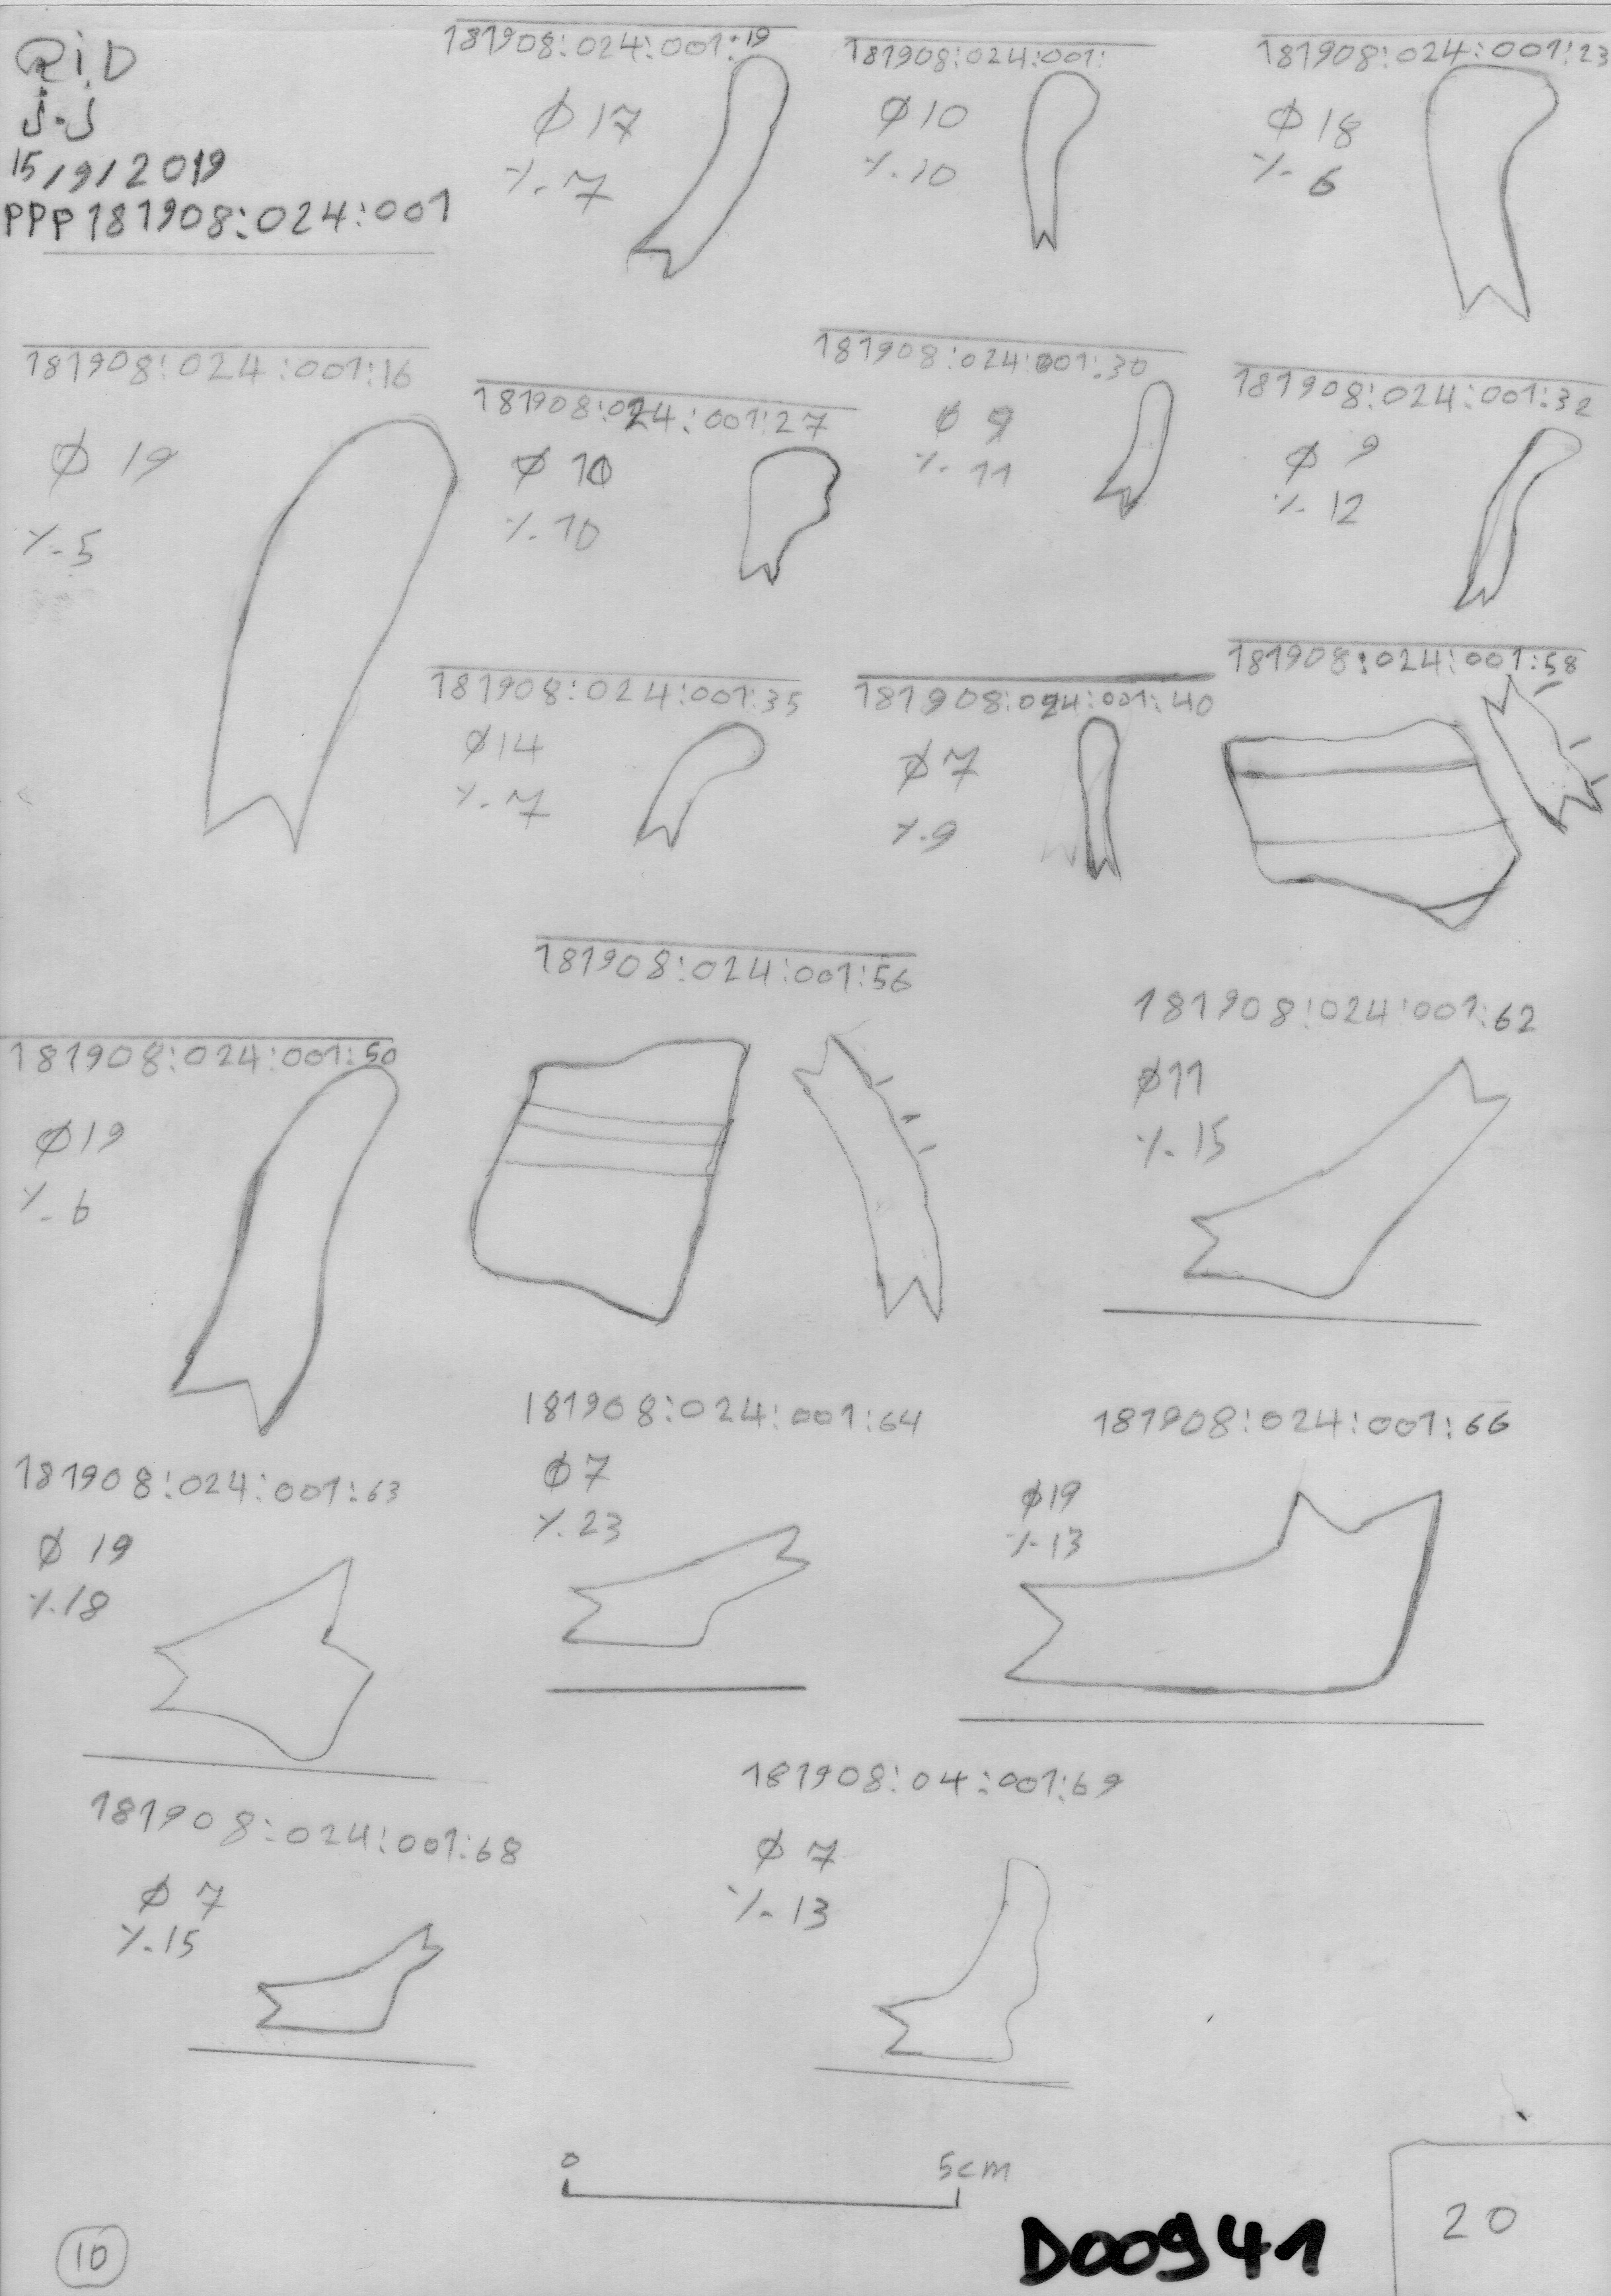 QiD
J.J
15/9/2019
PPP181908:024:001
181908:024:001:19
Ø17
%.7
181908:024:001:
Ø10
%.10
181908:024:001:23
Ø18
%.6
181908:024:001:16
Ø 19
%.5
181908:024:001:27
Ø 10
%.10
181908:024:001:30
Ø 9
%.11
181908:024:001:32
Ø 9
%.12
181908:024:001:35
Ø14
%.7
181908:024:001:40
Ø7
%.9
181908:024:001:58
181908:024:001:56
181908:024:001:62
Ø11
%.15
181908:024:001:50
Ø19
%.6
181908:024:001:63
Ø 19
%.18
181908:024:001:64
Ø7
%.23
181908:024:001:66
Ø19
%.13
181908:024:001:68
Ø 7
%.15
181908:04:001:69
Ø 7
%.13
0 5cm
D00941
20
10